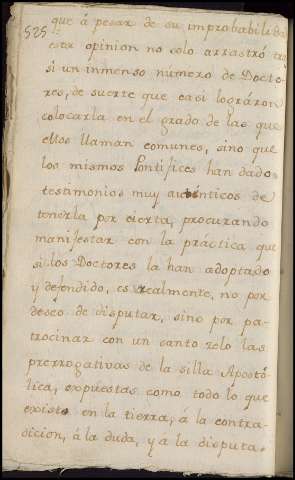 525
que á pesar de su improbabilidad
esta opinion no solo arrastró tras
si un inmenso número de Docto-
res, de suerte que casi lográron
colocarla en el grado de las que
ellos llaman comunes, sino que
los mismos Pontifices han dado
testimonios muy auténticos de
tenerla por cierta, procurando
manifestar con la práctica que
si los Doctores la han adoptado
y defendido, es realmente, no por
deseo de disputar, sino por pa-
trocinar con un santo zelo las
prerrogativas de la silla Apostó-
lica, expuestas como todo lo que
existe en la tierra, á la contra-
dicion, á la duda, y a la disputa.